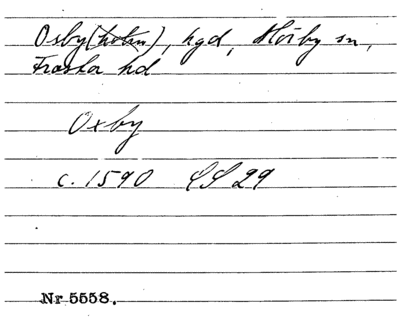 Osby(holm), hgd, Hörby sn,
Frosta hd
Oxby
c. 1590 LS 29
Nr 5558.